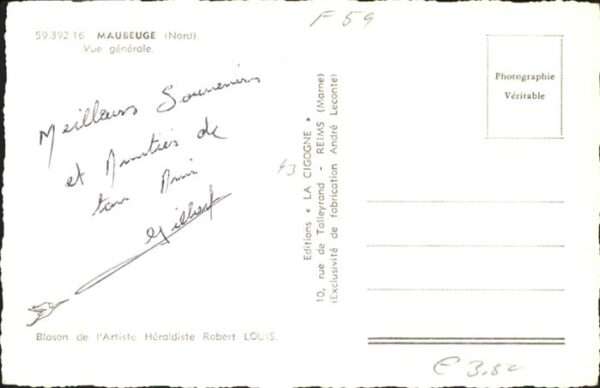 F 59
59.392 16 MAUBEUGE (Nord)
Vue générale.
Meilleurs Souvenirs
et Amitiés de
ton Ami
Gilbert
Blason de l'Artiste Héraldiste Robert LOUIS.
Editions "LA CIGOGNE"
10, rue de Talleyrand - REIMS (Marne)
(Exclusivité de fabrication André Leconte)
Photographie
Véritable